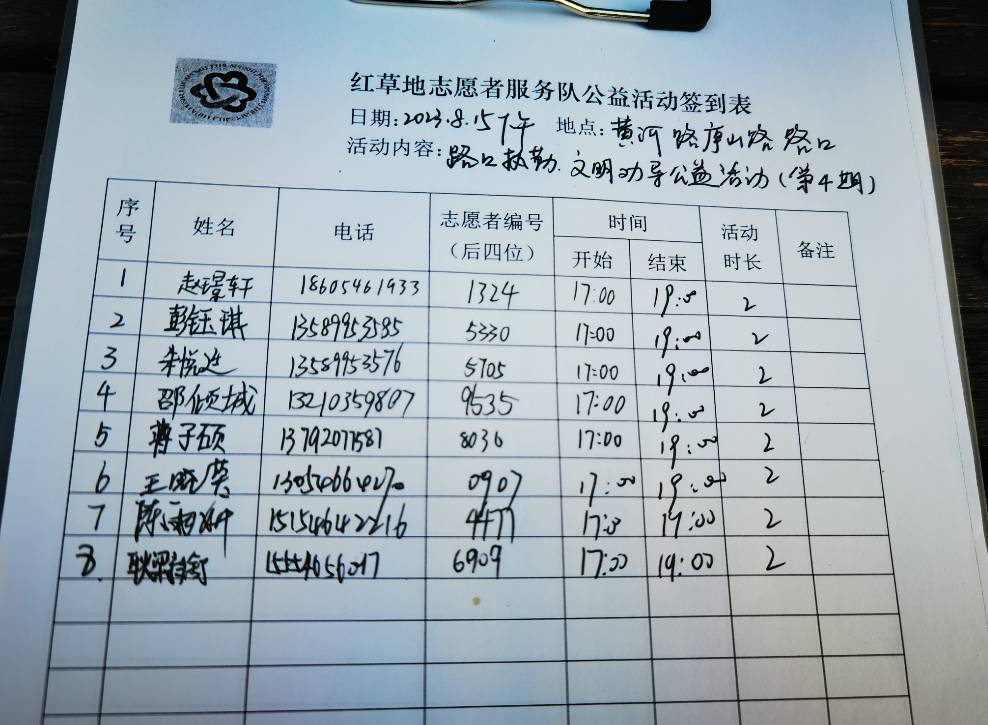 红草地志愿者服务队公益活动签到表
日期:2023.8.15下午 地点:黄河路庐山路路口
活动内容:路口执勤.文明劝导公益活动(第4期)
序号 姓名 电话 志愿者编号(后四位) 时间 开始 结束 活动时长 备注
1 赵璟轩 18605461933 1324 17:00 19:00 2
2 彭钰琪 13589953585 5330 17:00 19:00 2
3 朱悦 13589953576 5705 17:00 19:00 2
4 邵倾城 13210359807 9535 17:00 19:00 2
5 蒋子硕 13792077587 8036 17:00 19:00 2
6 王晓 13054664270 0907 17:00 19:00 2
7 陈雨 15154642216 4477 17:0 19:00 2
8. 耿 15554656017 6909 17:00 19:00 2